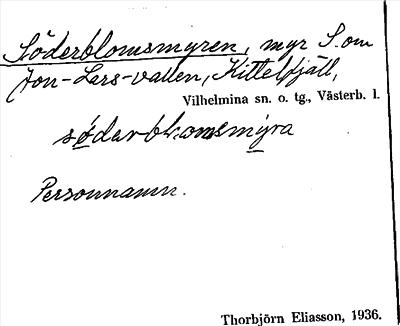 Söderblomsmyren, myr S. om
Jon-Lars-vallen, Kittelfjäll,
Vilhelmina sn. o. tg., Västerb. l.
södarblomsmýra
Personnamn.
Thorbjörn Eliasson, 1936.